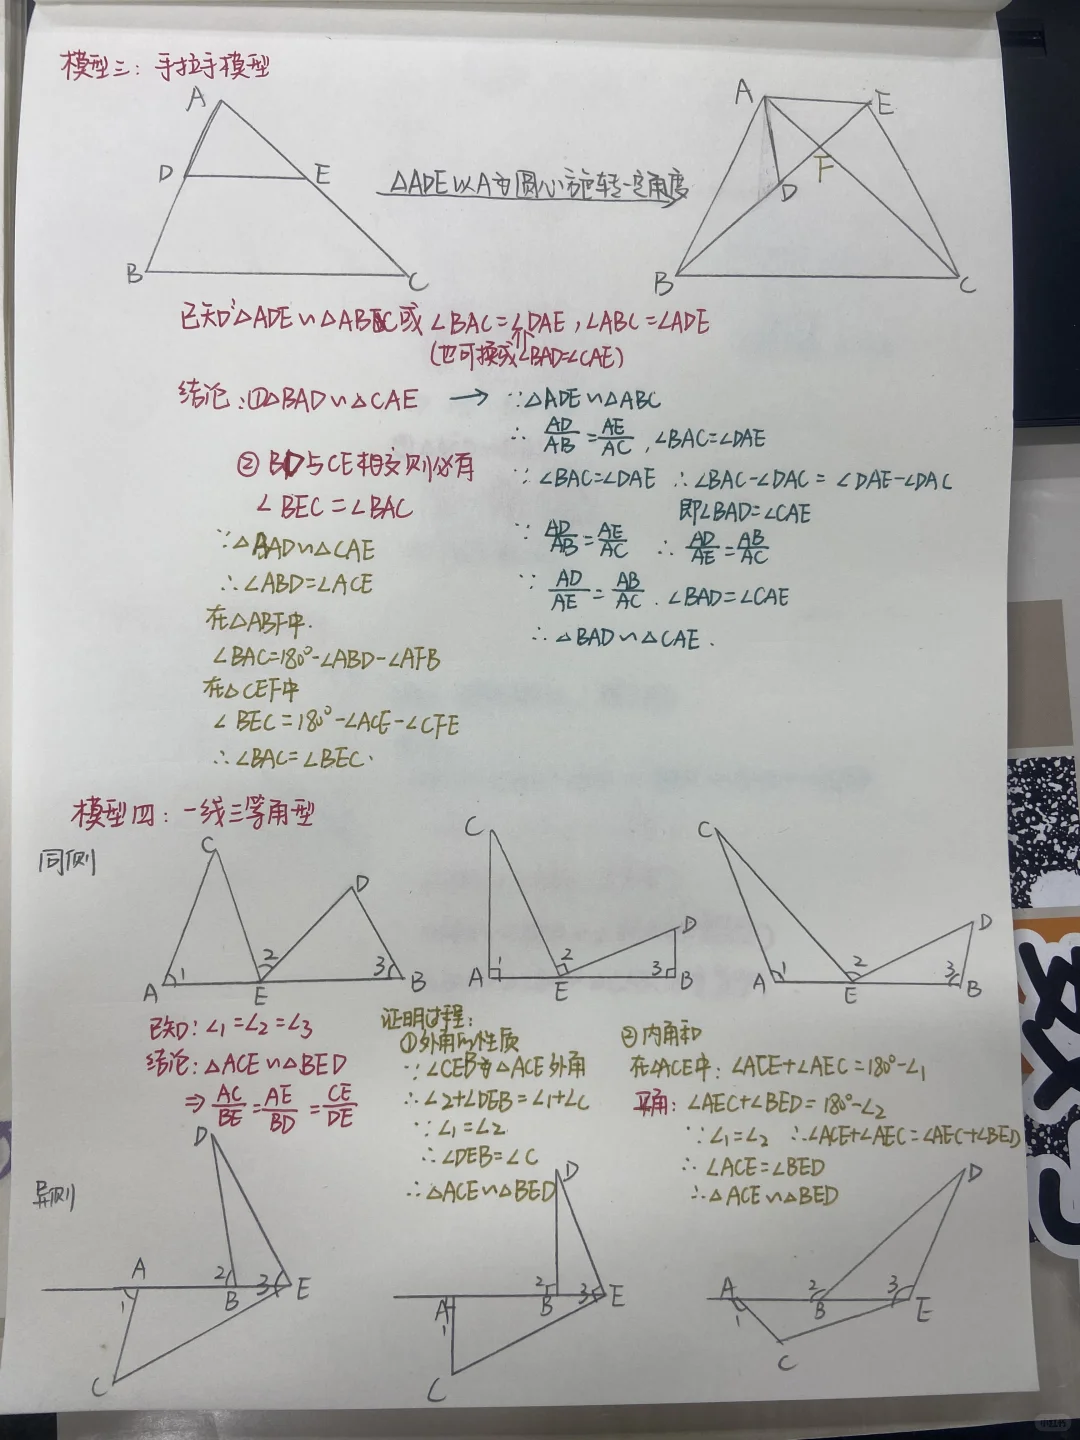 模型三：手拉手模型
A
D E
B C
△ADE以A为圆心旋转一定角度
A E
F
D
B C
已知△ADE∽△ABC或∠BAC=∠DAE，∠ABC=∠ADE
(也可换成∠BAD=∠CAE)
结论：①△BAD∽△CAE → ∵△ADE∽△ABC
∴ AD/AB=AE/AC，∠BAC=∠DAE
∵∠BAC=∠DAE ∴∠BAC-∠DAC=∠DAE-∠DAC
即∠BAD=∠CAE
∵ AD/AB=AE/AC ∴ AD/AE=AB/AC
∵ AD/AE=AB/AC．∠BAD=∠CAE
∴△BAD∽△CAE．
②BD与CE相交则必有
∠BEC=∠BAC
∵△BAD∽△CAE
∴∠ABD=∠ACE
在△ABF中．
∠BAC=180°-∠ABD-∠AFB
在△CEF中
∠BEC=180°-∠ACE-∠CFE
∴∠BAC=∠BEC．
模型四：一线三等角型
同侧
C D
1 2 3
A E B
C D
1 2 3
A E B
C D
1 2 3
A E B
已知：∠1=∠2=∠3
结论：△ACE∽△BED
⇒ AC/BE=AE/BD=CE/DE
证明过程：
①外角的性质
∵∠CEB为△ACE外角
∴∠2+∠DEB=∠1+∠C
∵∠1=∠2
∴∠DEB=∠C
∴△ACE∽△BED
②内角和
在△ACE中：∠ACE+∠AEC=180°-∠1
平角：∠AEC+∠BED=180°-∠2
∵∠1=∠2 ∴∠ACE+∠AEC=∠AEC+∠BED
∴∠ACE=∠BED
∴△ACE∽△BED
异侧
D
A 2 3 E
1 B
C
D
A 2 3 E
1 B
C
D
A 2 3
1 B E
C
小红书